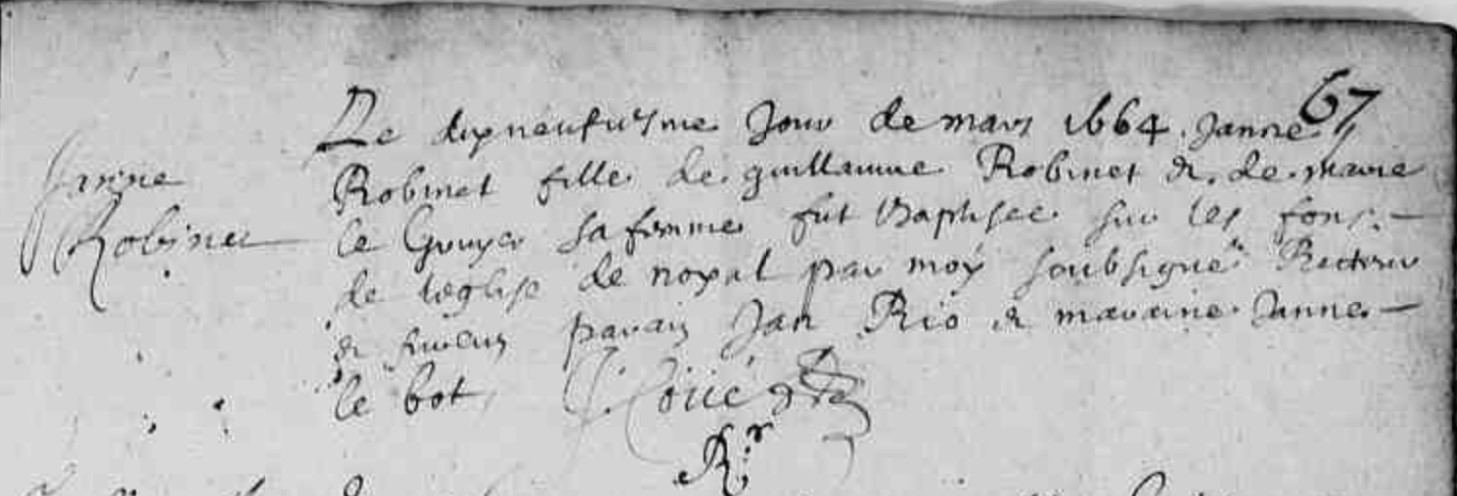 67
Janne
Robinet
Le dixneufviesme Jour de mars 1664 Janne
Robinet fille de guillaume Robinet & de marie
le Gouyer sa femme fut Baptisee sur les fons
de leglise de noyal par moy soubsigné Recteur
& furent parain Jan Rio & maraine Janne
le bot
Rr